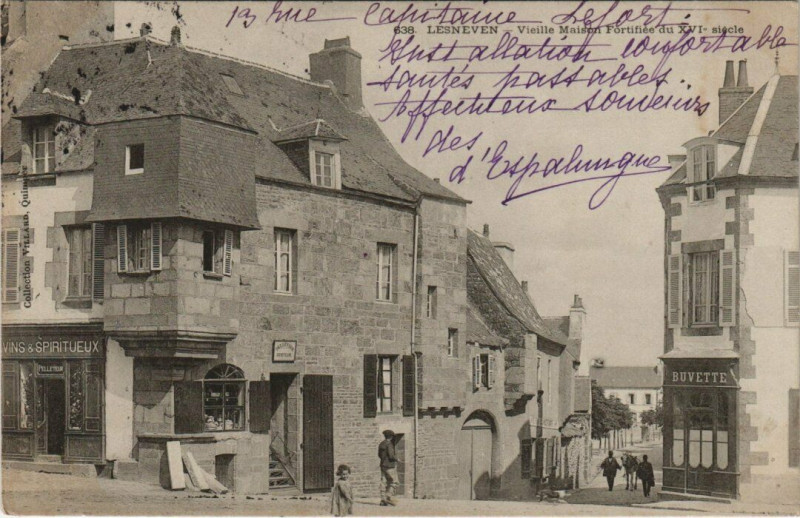 13 rue Capitaine Lefort.
638 LESNEVEN - Vieille Maison Fortifiée du XVIe siècle
Installation confortable
santés passables.
Affectueux souvenirs
des
d'Espalungue
Collection VILLARD, Quimper
VINS & SPIRITUEUX
PELLETEUR
BUVETTE